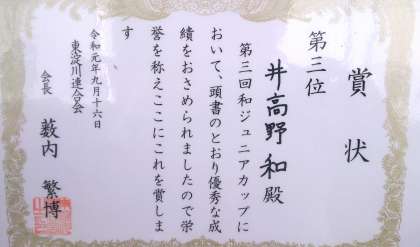 賞状
第三位
井高野和殿
第三回和ジュニアカップに
おいて、頭書のとおり優秀な成
績をおさめられましたので栄
誉を称えここにこれを賞しま
す
令和元年九月十六日
東淀川連合会
会長 薮内 繁博